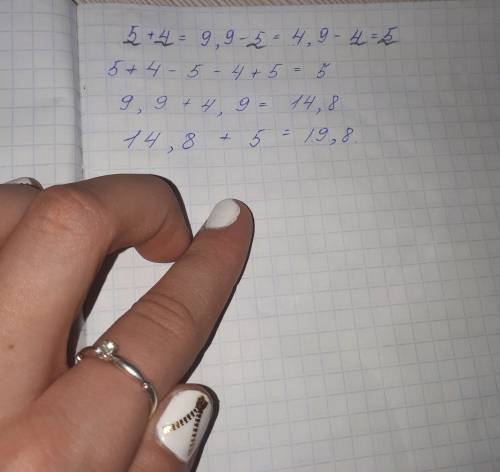 5 + 4 = 9, 9 - 5 = 4, 9 - 4 = 5
5 + 4 - 5 - 4 + 5 = 5
9, 9 + 4, 9 = 14,8
14,8 + 5 = 19,8.